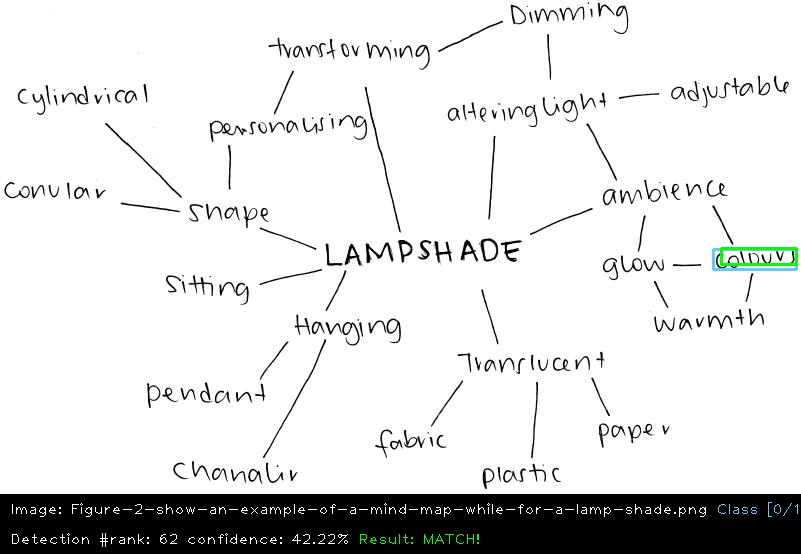 Dimming
transforming
cylindrical
altering light
adjustable
personalising
conular
shape
ambience
LAMPSHADE
glow
colours
sitting
warmth
Hanging
Translucent
pendant
fabric
paper
chanalir
plastic
Image: Figure-2-show-an-example-of-a-mind-map-while-for-a-lamp-shade.png Class [0/1
Detection #rank: 62 confidence: 42.22% Result: MATCH!